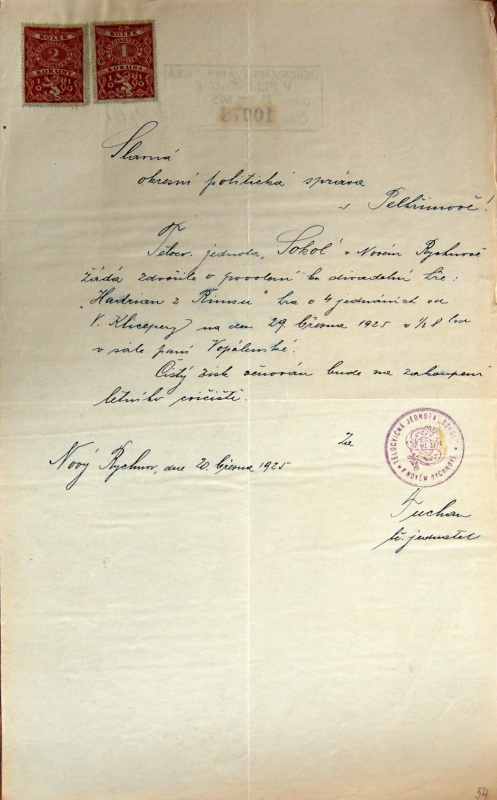 KOLEK
2
KORUNY
KOLEK
1
KORUNA
10078
Slavná
okresní politická správa
v Pelhřimově!
Tělocv. jednota „Sokol" v Novém Rychnově
žádá zdvořile o povolení ku divadelní hře:
„Hadrian z Římsů" hra o 4 jednáních od
V. Klicpery na den 29. března 1925 v 1/2 8 hod
v sále paní Vopálenské.
Čistý zisk věnován bude na zakoupení
letního cvičiště.
Za
Nový Rychnov, dne 20. března 1925
TĚLOCVIČNÁ JEDNOTA „SOKOL"
V NOVÉM RYCHNOVĚ
Tuchan
t.č. jednatel
54